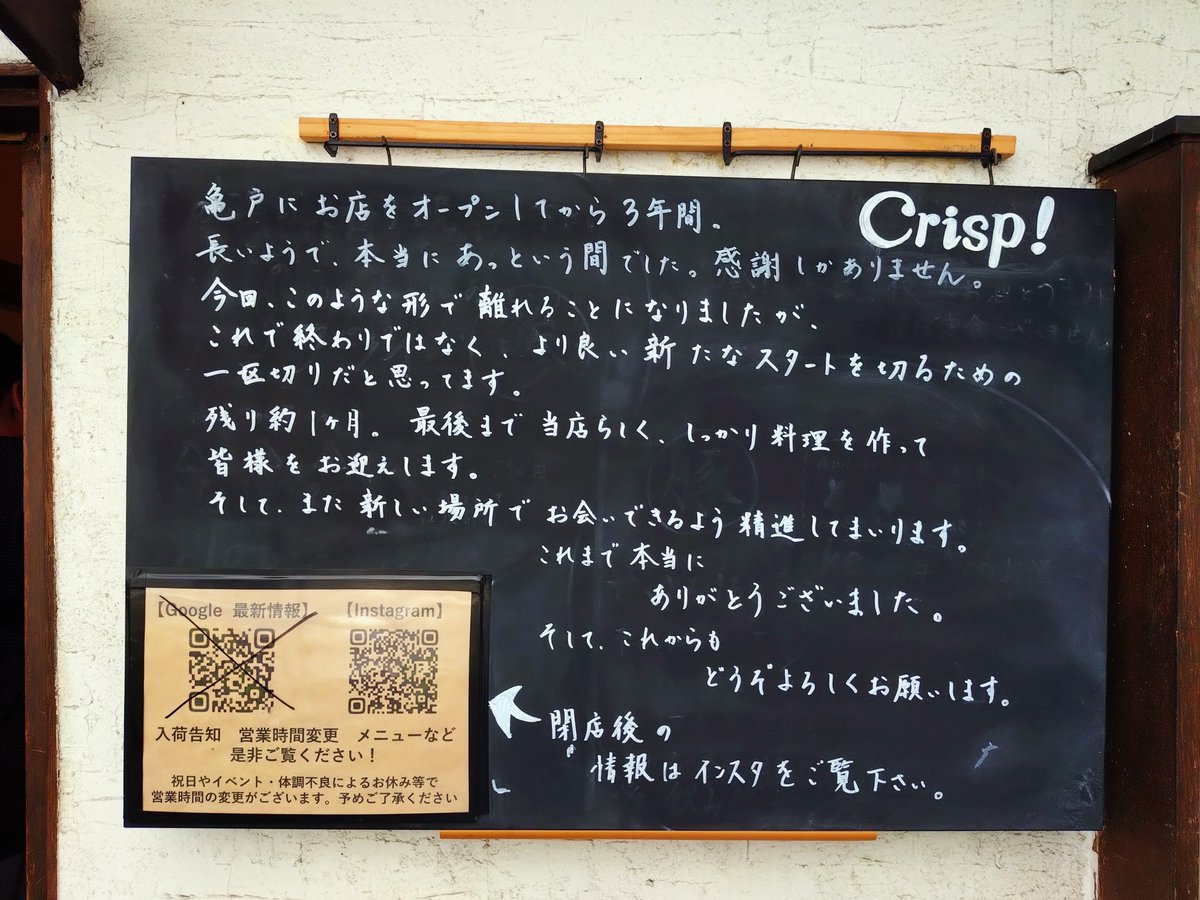 Crisp!
亀戸にお店をオープンしてから3年間。
長いようで、本当にあっという間でした。感謝しかありません。
今回、このような形で離れることになりましたが、
これで終わりではなく、より良い新たなスタートを切るための
一区切りだと思ってます。
残り約1ヶ月。最後まで当店らしく、しっかり料理を作って
皆様をお迎えします。
そして、また新しい場所でお会いできるよう精進してまいります。
これまで本当に
ありがとうございました。
そして、これからも
どうぞよろしくお願いします。
閉店後の
情報はインスタをご覧下さい。
【Google 最新情報】 【Instagram】
入荷告知 営業時間変更 メニューなど
是非ご覧ください！
祝日やイベント・体調不良によるお休み等で
営業時間の変更がございます。予めご了承ください